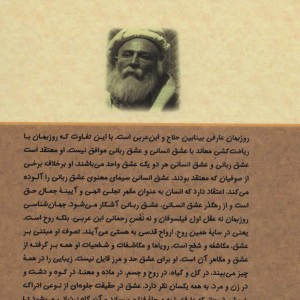 روزبهان عارفی بینابین حلاج و ابن‌عربی است. با این تفاوت که روزبهان با
ریاضت‌کشی معاند با عشق انسانی و عشق ربانی موافق نیست. او معتقد است
عشق ربانی و عشق انسانی هر دو یک عشق واحد می‌باشند. او برخلاف برخی
از صوفیان که معتقد بودند. عشق انسانی سیمای معنوی عشق ربانی را آلوده
می‌کند. اعتقاد دارد که انسان به عنوان مظهر تجلی الهی و آیینهٔ جمال حق
است و از رهگذر عشق انسانی، عشق ربانی آشکار می‌شود. جهان‌شناسی
روزبهان نه عقل اول فیلسوفان و نه نفس رحمانی ابن عربی، بلکه روح است.
یعنی در سایهٔ همین روح، ارواح قدسی به هستی می‌آیند. تصوف او مبتنی بر
عشق، مکاشفه و شطح است. رویاها و مکاشفات و شخصیت او همه بر گرفته از
عشق و مظاهر آن است. او برای عشق حد و مرز قایل نیست. زیبایی را در همهٔ
چیز می‌بیند. در گل و گیاه، در روح و جسم، در ماده و معنا، در کوه و دشت و
در زن و مرد به همه یکسان نظر دارد. عشق در حقیقت جلوه‌ای از نوعی ادراک